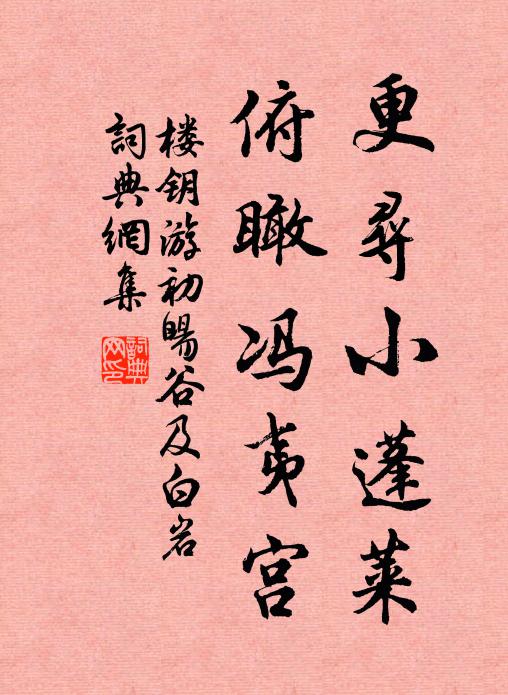 更尋小蓬萊
俯瞰冯夷宫
楼钥游初晹谷及白岩
詞典網集
詞典
网印